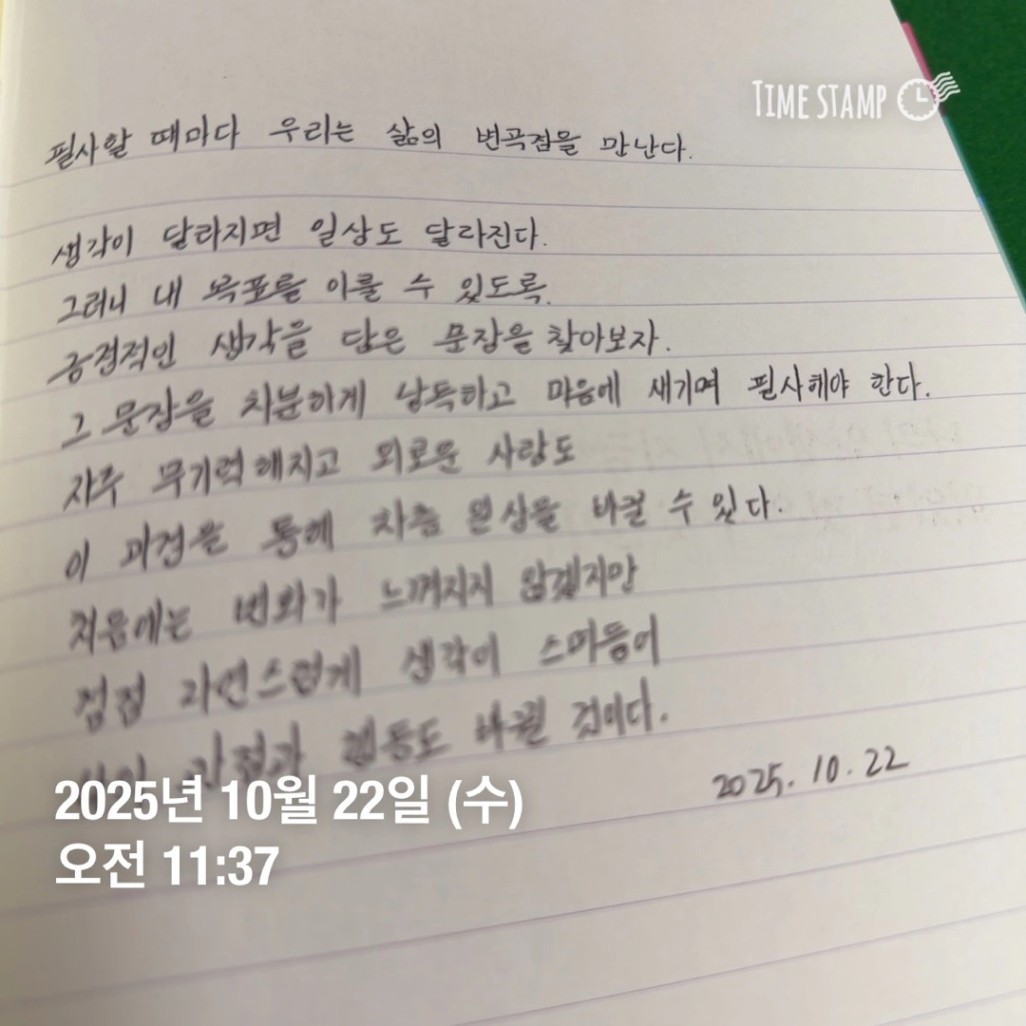 TIME STAMP
필사할 때마다 우리는 삶의 변곡점을 만난다.
생각이 달라지면 일상도 달라진다.
그러니 내 목표를 이룰 수 있도록
긍정적인 생각을 담은 문장을 찾아보자.
그 문장을 차분하게 낭독하고 마음에 새기며 필사해야 한다.
자주 무기력해지고 외로운 사람도
이 과정을 통해 차츰 일상을 바꿀 수 있다.
처음에는 변화가 느껴지지 않겠지만
점점 자연스럽게 생각이 스며들어
감정과 행동도 바뀔 것이다.
2025. 10. 22
2025년 10월 22일 (수)
오전 11:37